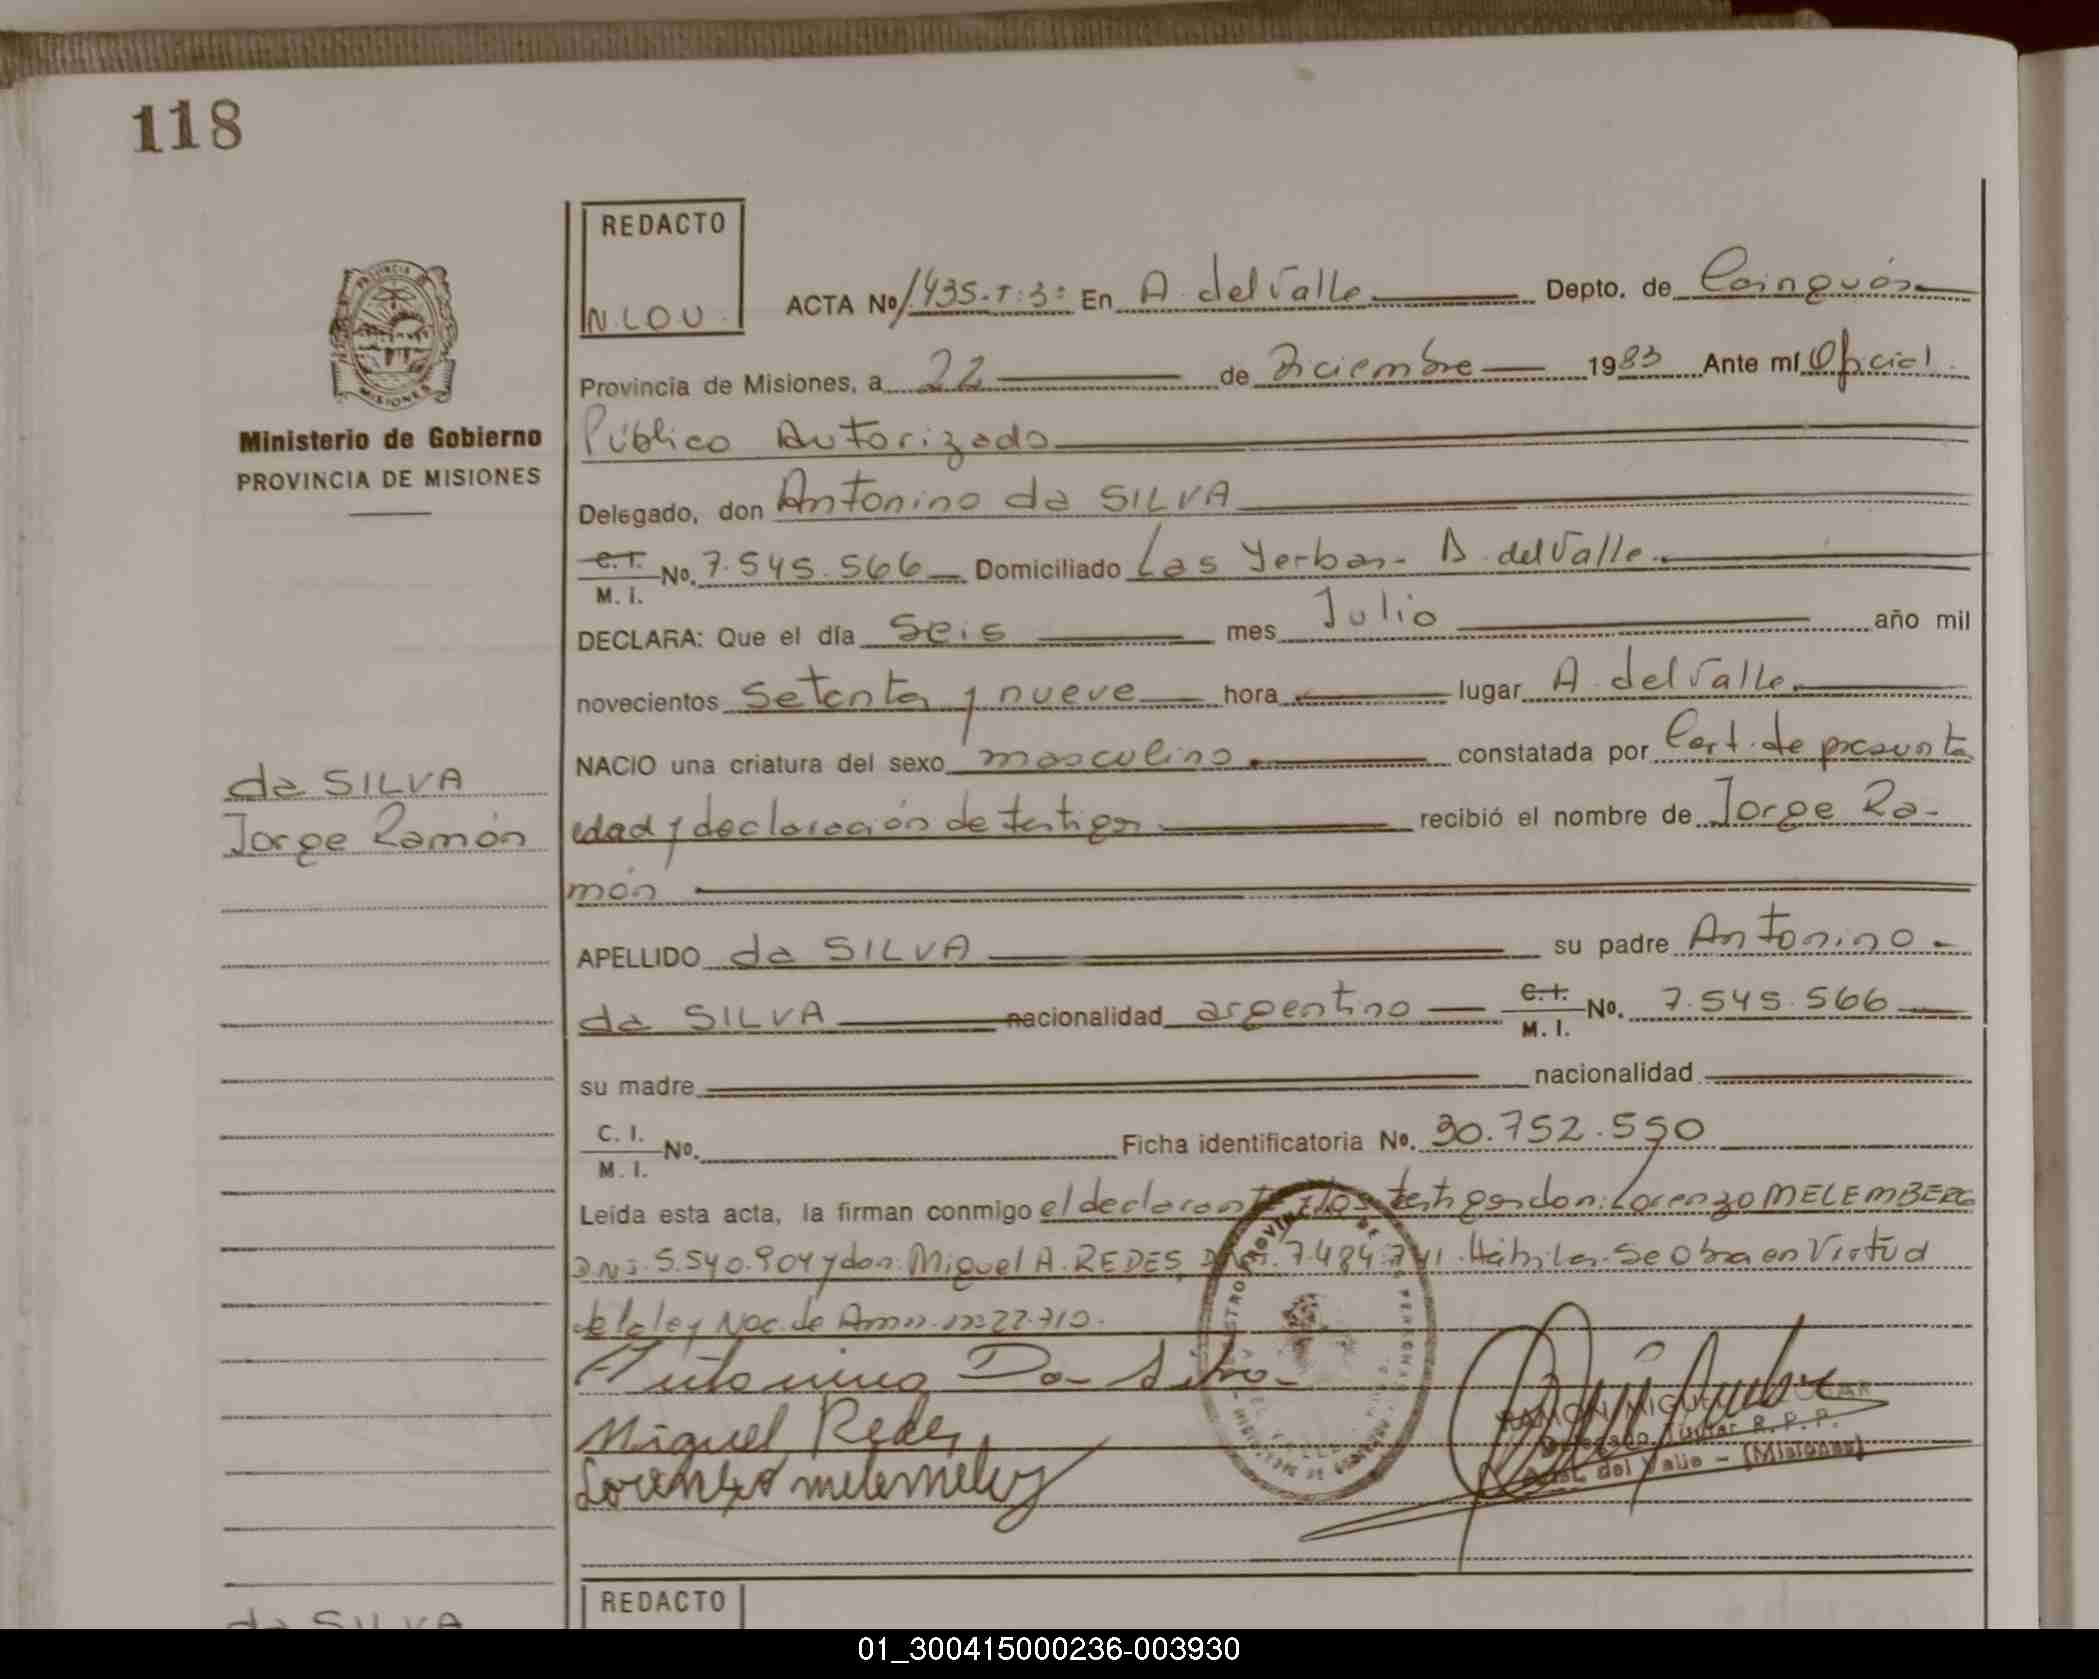 118
REDACTO
N. LOU.
ACTA Nº 1435-T:3º En A. del Valle Depto. de Cainguás
Provincia de Misiones, a 22 de Diciembre 1983 Ante mí Oficial
Ministerio de Gobierno
Público Autorizado
PROVINCIA DE MISIONES
Delegado, don Antonino da SILVA
C.I. M.I. No. 7.545.566 Domiciliado Las Yerbas - A. del Valle
DECLARA: Que el día seis mes Julio año mil
novecientos setenta y nueve hora lugar A. del Valle
NACIO una criatura del sexo masculino constatada por Cert. de presunta
da SILVA
Jorge Ramón
edad y declaración de testigos recibió el nombre de Jorge Ra-
món
APELLIDO da SILVA su padre Antonino
da SILVA nacionalidad argentino C.I. M.I. No. 7.545.566
su madre nacionalidad
C.I. M.I. No. Ficha identificatoria No. 30.752.590
Leída esta acta, la firman conmigo el declarante y los testigos don: Lorenzo MELEMBERG
DNI: 5.540.904 y don: Miguel A. REDES, 7.484.741. Hábiles. Se Obra en Virtud
de la ley Nac. de
Antonino Da Silva
Miguel Redes
Lorenzo
RAMON MIGUEL
Delegado Titular R. P. P.
Arist. del Valle - (Misiones)
REDACTO
da SILVA
01_300415000236-003930